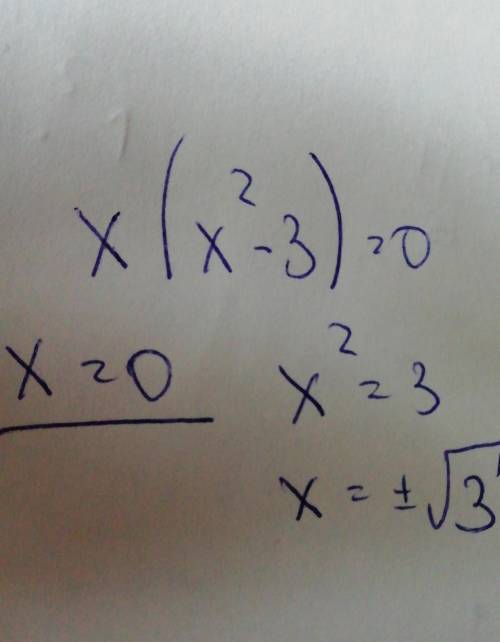 x(x²-3)=0
x=0 x²=3
x=±√3